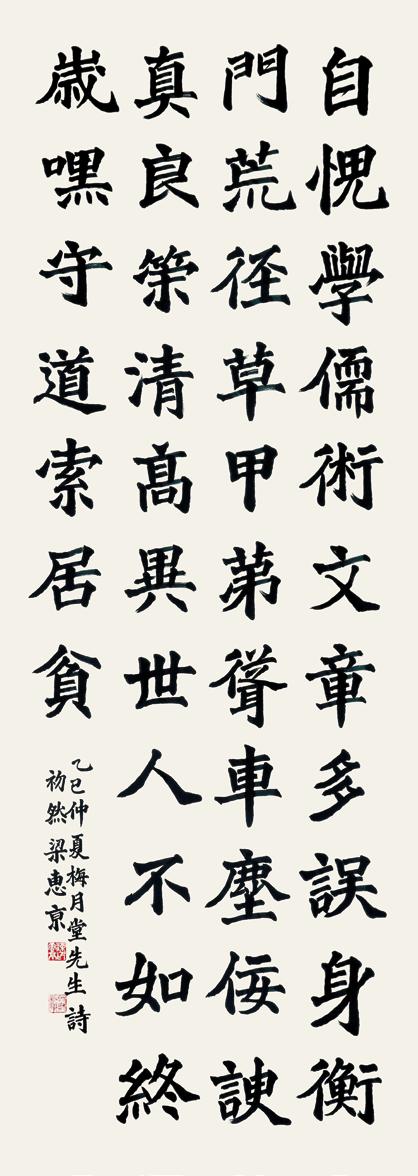 自愧學儒術文章多誤身衡
門荒径草甲苐聳車塵佞諛
真良筞清髙異世人不如終
歳嘿守道索居貧
乙巳仲夏梅月堂先生詩
初然梁恵京